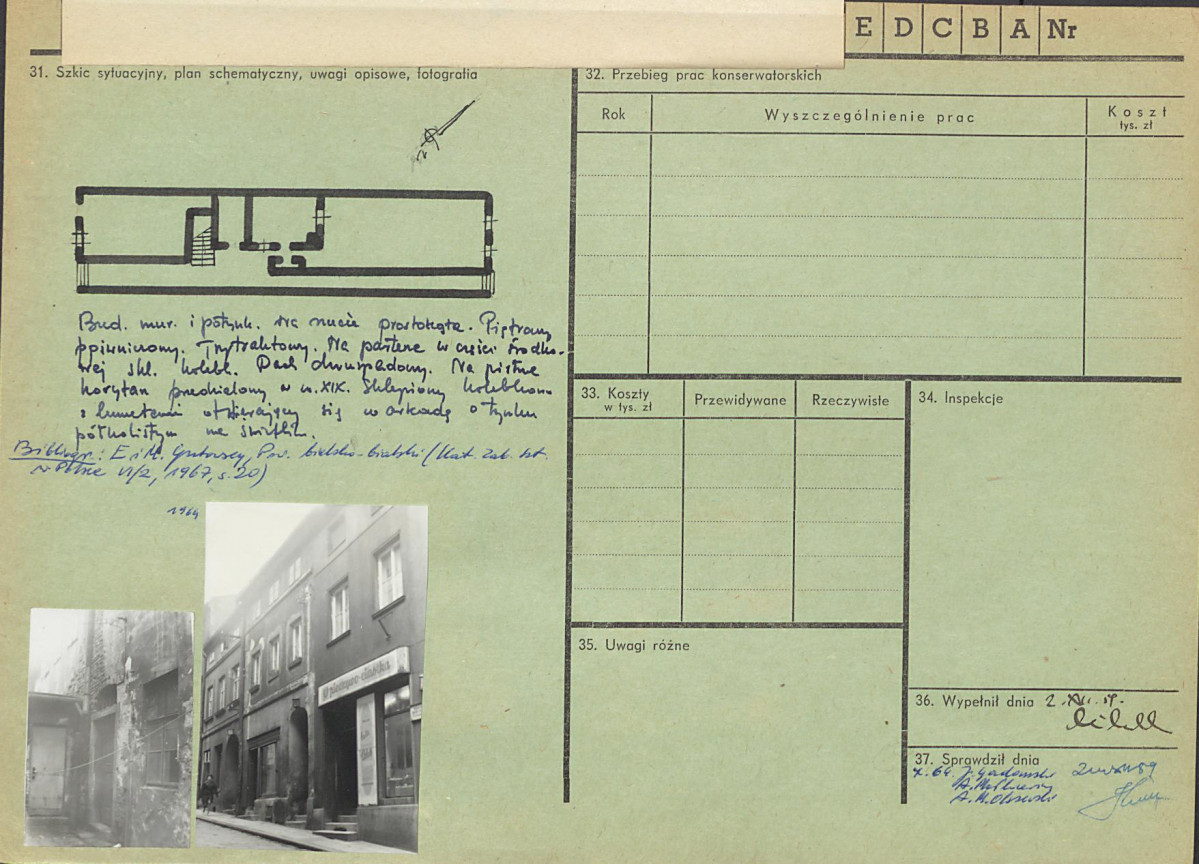 E D C B A Nr
31. Szkic sytuacyjny, plan schematyczny, uwagi opisowe, fotografia
Bud. mur. i potynk. Na rzucie prostokąta. Piętrowy
ppiwniczony. Trytraktowy. Na parterze w części środko-
wej skl. koleb. Dach dwuspadowy. Na piętrze
korytarz przedzielony w w. XIX. Sklepiony kolebkowo
z lunetami otwierający się arkadą o łuku
półkolistym na
Bibliogr.: E i M. Gutowscy, Pow. bielsko-bialski (Kat. zab. szt.
w Polsce VI/2, 1967, s. 20)
1964
pieczywo-ciastka
32. Przebieg prac konserwatorskich
Rok
Wyszczególnienie prac
Koszt
tys. zł
33. Koszty
w tys. zł
Przewidywane
Rzeczywiste
34. Inspekcje
35. Uwagi różne
36. Wypełnił dnia 2.XII.59.
37. Sprawdził dnia
X. 64. J. Gadomski